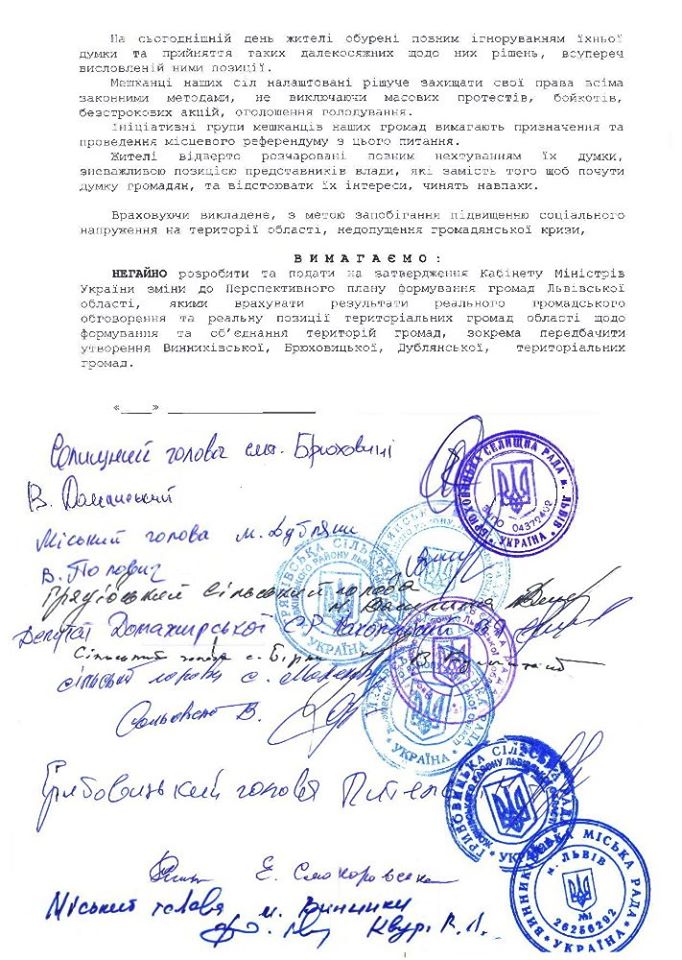 На сьогоднішній день жителі обурені повним ігноруванням їхньої
думки та прийняття таких далекосяжних щодо них рішень, всупереч
висловленій ними позиції.
Мешканці наших сіл налаштовані рішуче захищати свої права всіма
законними методами, не виключаючи масових протестів, бойкотів,
безстрокових акцій, оголошення голодування.
Ініціативні групи мешканців наших громад вимагають призначення та
проведення місцевого референдуму з цього питання.
Жителі відверто розчаровані повним нехтуванням їх думки,
зневажливою позицією представників влади, які замість того щоб почути
думку громадян, та відстоювати їх інтереси, чинять навпаки.
Враховуючи викладене, з метою запобігання підвищенню соціального
напруження на території області, недопущення громадянської кризи,
В И М А Г А Є М О :
НЕГАЙНО розробити та подати на затвердження Кабінету Міністрів
України зміни до Перспективного плану формування громад Львівської
області, якими врахувати результати реального громадського
обговорення та реальну позиції територіальних громад області щодо
формування та об’єднання територій громад, зокрема передбачити
утворення Винниківської, Брюховицької, Дублянської, територіальних
громад.
«____» ____________________
Селищний голова смт. Брюховичі
БРЮХОВИЦЬКА СЕЛИЩНА РАДА м. ЛЬВІВ
04372402
УКРАЇНА
Міський голова м. Дубляни
В. Попович
сільський голова
Депутат Домажирської СР
УКРАЇНА
сільський голова с.
УКРАЇНА
Грибовицький голова
ГРИБОВИЦЬКА СІЛЬСЬКА РАДА
УКРАЇНА
Міський голова м. Винники
ВИННИКІВСЬКА МІСЬКА РАДА
м. ЛЬВІВ
№1
26256292
УКРАЇНА